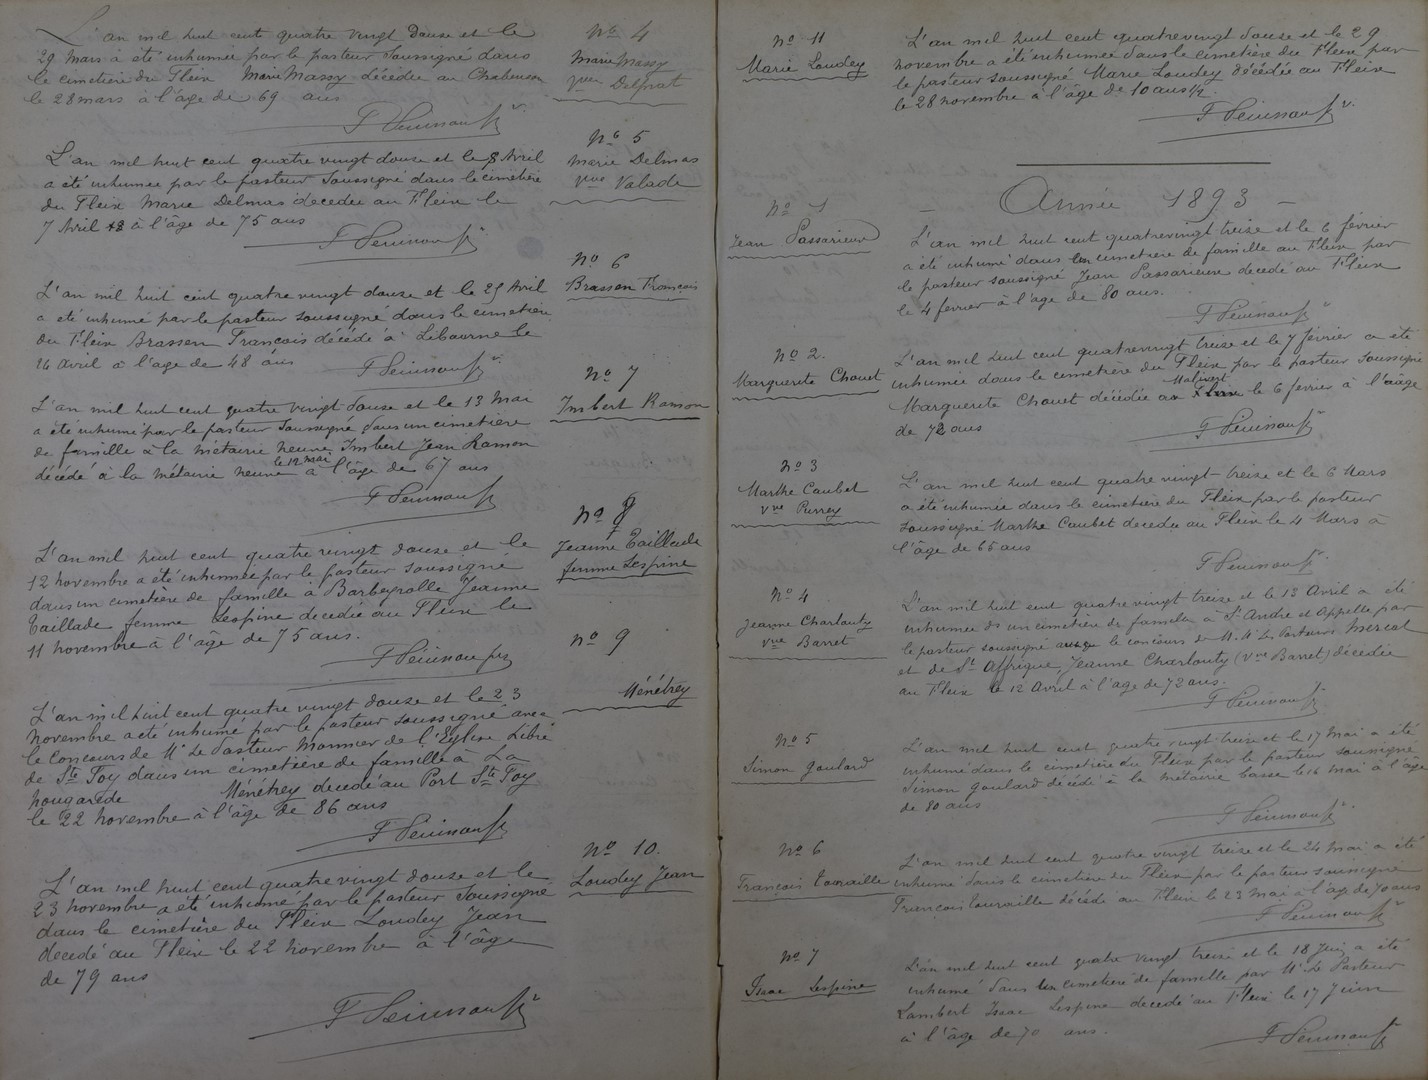 L'an mil huit cent quatre vingt douse et le
29 Mars a été inhumée par le pasteur soussigné dans
le cimetière du Fleix Marie Massy décédée au Chabenson
le 28 mars à l'âge de 69 ans
N° 4
Marie Massy
Vve Delprat
L'an mil huit cent quatre vingt douse et le 8 Avril
a été inhumée par le pasteur soussigné dans le cimetière
du Fleix Marie Delmas décedée au Fleix le
7 Avril à l'âge de 75 ans
N° 5
Marie Delmas
Vve Valade
L'an mil huit cent quatre vingt douse et le 25 Avril
a été inhumé par le pasteur soussigné dans le cimetière
du Fleix Brassen François décédé à Libourne le
24 Avril à l'age de 48 ans
N° 6
Brassen François
L'an mil huit cent quatre vingt douse et le 13 Mai
a été inhumé par le pasteur soussigné dans un cimetière
de famille à la métairie neuve Imbert Jean Ramon
décédé à la métairie neuve le 12 mai à l'âge de 67 ans
N° 7
Imbert Ramon
L'an mil huit cent quatre vingt douse et le
12 novembre a été inhumée par le pasteur soussigné
dans un cimetière de famille à Barbeyrolle Jeanne
Taillade femme Lespine decedée au Fleix le
11 novembre à l'âge de 75 ans.
N° 8
Jeanne Taillade
femme Lespine
L'an mil huit cent quatre vingt douse et le 23
novembre a été inhumé par le pasteur soussigné avec
le concours de Mr Le Pasteur Monnier de l'Eglise Libre
de Ste Foy dans un cimetière de famille à La
Nougarede Ménétrey decedé au Port Ste Foy
le 22 novembre à l'âge de 86 ans
N° 9
Ménétrey
L'an mil huit cent quatre vingt douse et le
23 novembre a été inhumé par le pasteur soussigné
dans le cimetière du Fleix Loudey Jean
decedé au Fleix le 22 novembre à l'âge
de 79 ans
N° 10.
Loudey Jean
N° 11
Marie Loudey
L'an mil huit cent quatrevingt douse et le 29
novembre a été inhumée dans le cimetière du Fleix par
le pasteur soussigné Marie Loudey décédée au Fleix
le 28 novembre à l'âge de 10 ans 1/2.
– Année 1893 –
N° 1
Jean Passarieux
L'an mil huit cent quatrevingt treize et le 6 février
a été inhumé dans un cimetière de famille au Fleix par
le pasteur soussigné Jean Passarieux decedé au Fleix
le 4 fevrier à l'âge de 80 ans.
N° 2.
Marguerite Chouet
L'an mil huit cent quatrevingt treize et le 7 février a été
inhumée dans le cimetière du Fleix par le pasteur soussigné
Marguerite Chouet décédée à Malivert le 6 fevrier à l'âge
de 72 ans
N° 3
Marthe Caubet
vve Purrey
L'an mil huit cent quatre vingt treize et le 6 Mars
a été inhumée dans le cimetière du Fleix par le pasteur
soussigné Marthe Caubet decedée au Fleix le 4 Mars à
l'âge de 65 ans
N° 4
Jeanne Charlouty
vve Barret
L'an mil huit cent quatre vingt treize et le 13 Avril a été
inhumée ds un cimetière de famille à St André et Appelle par
le pasteur soussigné avec le concours de M. M. Les Pasteurs Mercat
et de St Affrique Jeanne Charlouty (Vve Barret) décédée
au Fleix le 12 Avril à l'age de 72 ans.
N° 5
Simon Goulard
L'an mil huit cent quatre vingt treize et le 17 mai a été
inhumé dans le cimetière du Fleix par le pasteur soussigné
Simon Goulard décédé à la métairie basse le 16 mai à l'âge
de 80 ans
N° 6
François Touraille
L'an mil huit cent quatre vingt treize et le 24 mai a été
inhumé dans le cimetière du Fleix par le pasteur soussigné
François Touraille décédé au Fleix le 23 mai à l'âge de 70 ans
N° 7
Isaac Lespine
L'an mil huit cent quatre vingt treize et le 18 Juin a été
inhumé dans un cimetière de famille par Mr Le Pasteur
Lambert Isaac Lespine decedé au Fleix le 17 Juin
à l'âge de 70 ans.